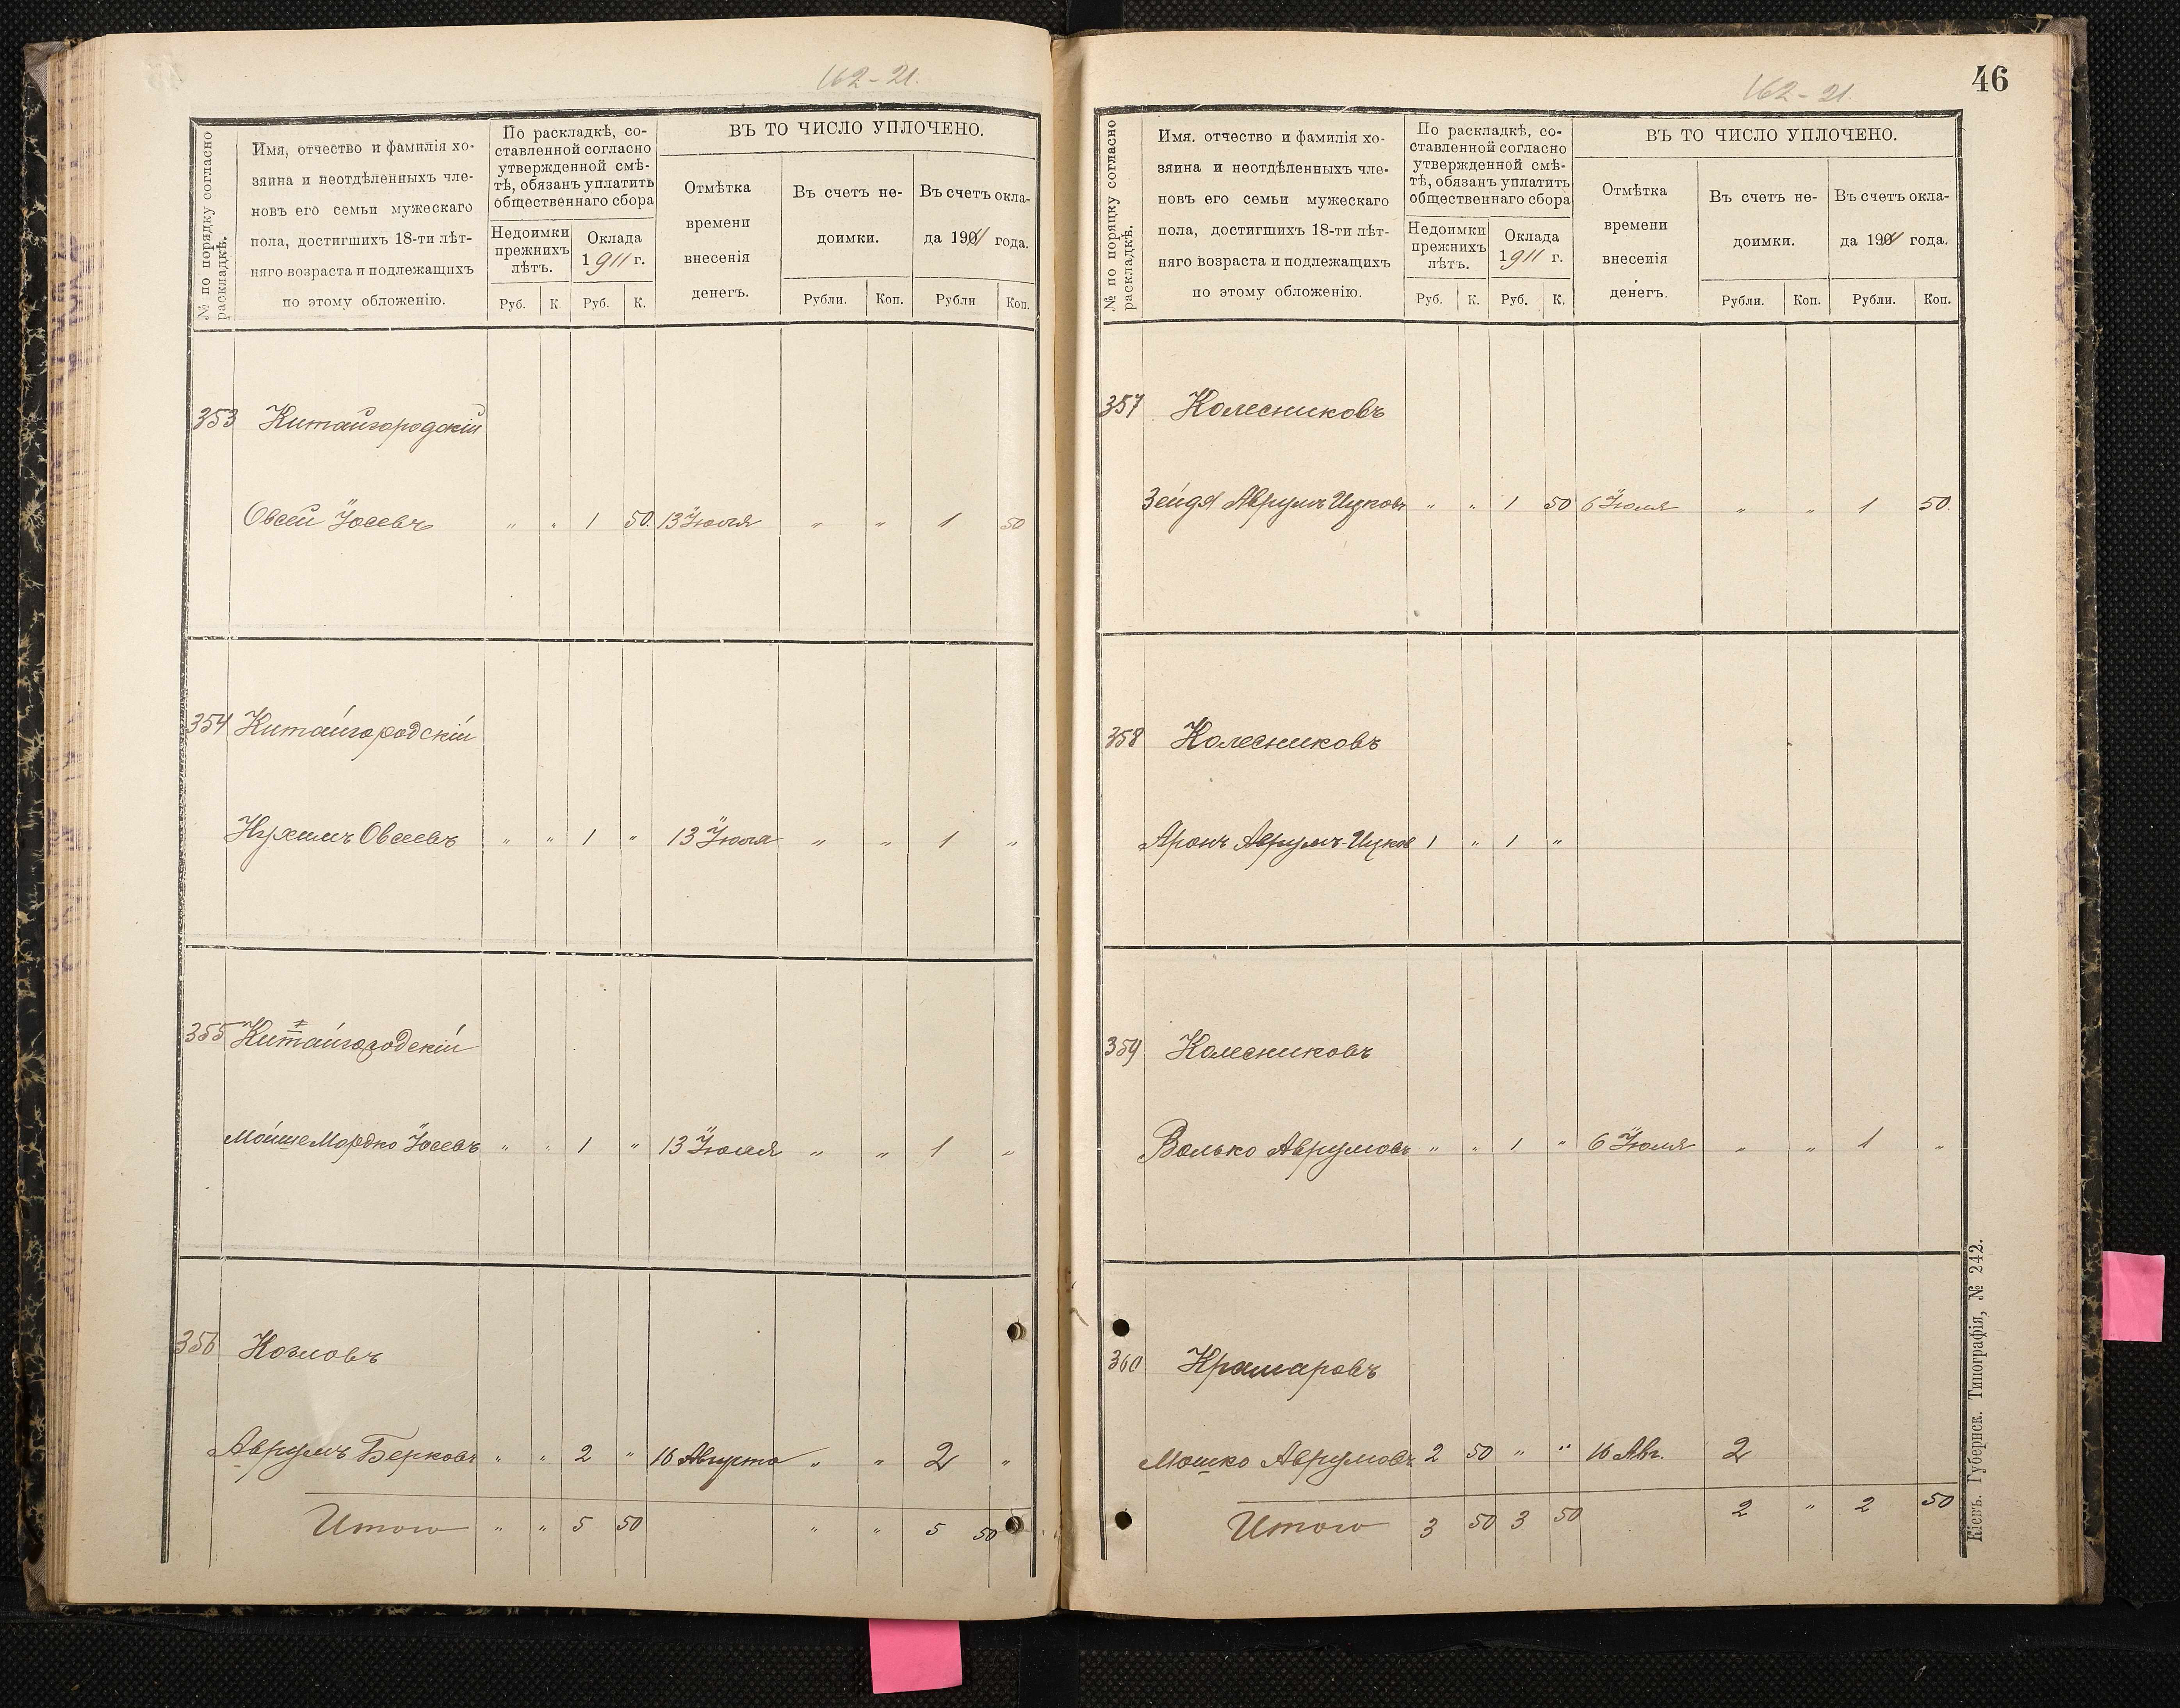 162-21.
№ по порядку согласно раскладкѣ.
Имя, отчество и фамилія хо-
зяина и неотдѣленныхъ чле-
новъ его семьи мужескаго
пола, достигшихъ 18-ти лѣт-
няго возраста и подлежащихъ
по этому обложенію.
По раскладкѣ, со-
ставленной согласно
утвержденной смѣ-
тѣ, обязанъ уплатить
общественнаго сбора
Недоимки
прежнихъ
лѣтъ.
Оклада
1911 г.
Руб. К. Руб. К.
ВЪ ТО ЧИСЛО УПЛОЧЕНО.
Отмѣтка
времени
внесенія
денегъ.
Въ счетъ не-
доимки.
Въ счетъ окла-
да 1911 года.
Рубли. Коп. Рубли Коп.
353 Китайгородскій
Овсей Іосевъ " " 1 50. 13 Іюля " " 1 50
354 Китайгородскій
Нухимъ Овсеевъ " " 1 " 13 Іюля " " 1 "
355 Китайгородскій
Мойше Мордко Іосевъ " " 1 " 13 Іюля " " 1 "
356 Козловъ
Аврумъ Берковъ " " 2 " 16 Августа " " 2 "
Итого " " 5 50 " " 5 50
162-21.
46
№ по порядку согласно раскладкѣ.
Имя. отчество и фамилія хо-
зяина и неотдѣленныхъ чле-
новъ его семьи мужескаго
пола, достигшихъ 18-ти лѣт-
няго возраста и подлежащихъ
по этому обложенію.
По раскладкѣ, со-
ставленной согласно
утвержденной смѣ-
тѣ, обязанъ уплатить
общественнаго сбора
Недоимки
прежнихъ
лѣтъ.
Оклада
1911 г.
Руб. К. Руб. К.
ВЪ ТО ЧИСЛО УПЛОЧЕНО.
Отмѣтка
времени
внесенія
денегъ.
Въ счетъ не-
доимки.
Въ счетъ окла-
да 1911 года.
Рубли. Коп. Рубли. Коп.
357 Колесниковъ
Зейдя Аврумъ Ицковъ " " 1 50 6 Іюля " " 1 50.
358 Колесниковъ
Аронъ Аврумъ-Ицков 1 " 1 "
359 Колесниковъ
Волько Аврумовъ " " 1 " 6 Іюля " " 1 "
360 Крамаровъ
Мошко Аврумовъ 2 50 " " 16 Авг. 2
Итого 3 50 3 50 2 " 2 50
Кіевъ. Губернск. Типографія, № 242.